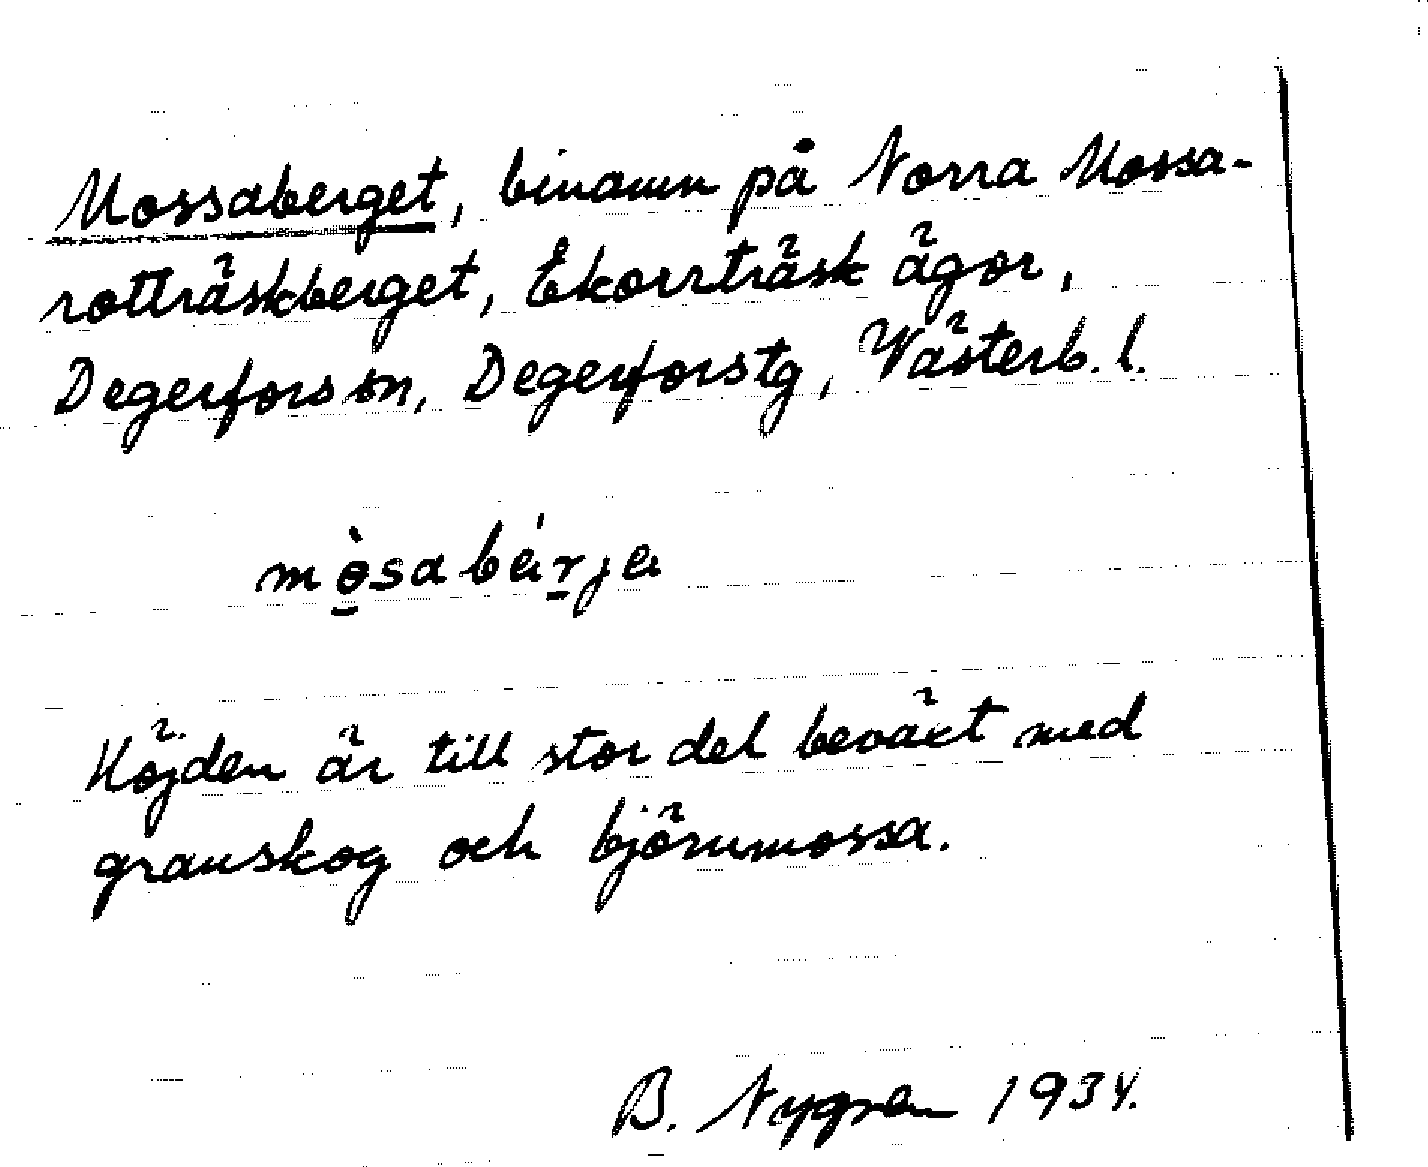 Mossaberget, binamn på Norra Mossa-
rotträskberget, Ekorrträsk ägor,
Degerfors sn, Degerforstg, Västerb. l.
mòsabérje
Höjden är till stor del beväxt med
granskog och björnmossa.
B. Nygren 1934.